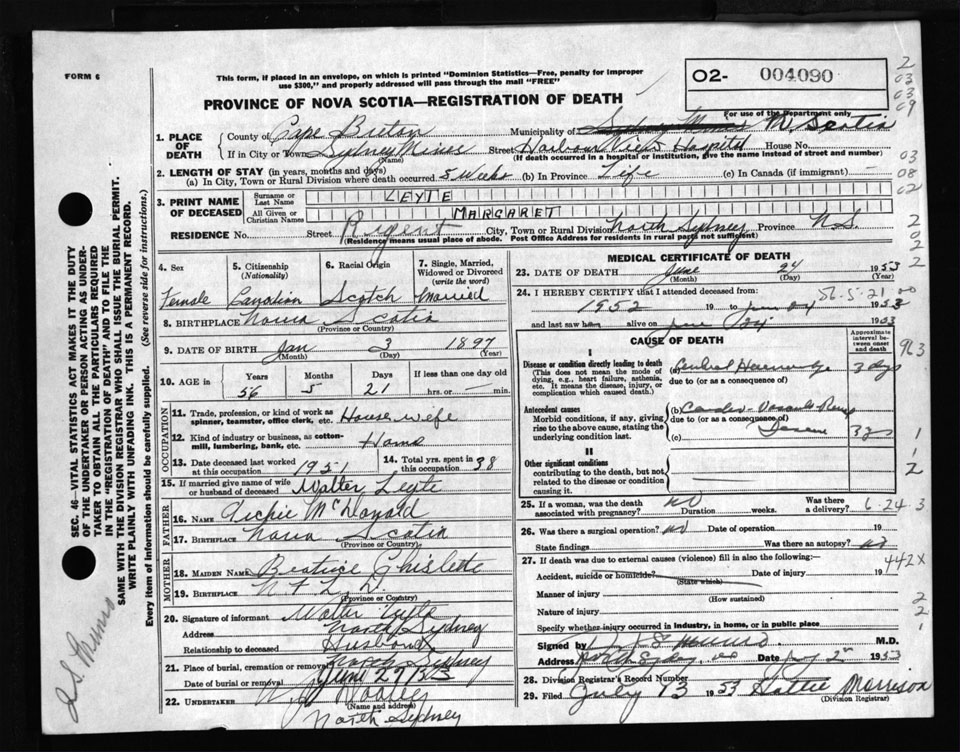 FORM 6
This form, if placed in an envelope, on which is printed "Dominion Statistics—Free, penalty for improper
use $300," and properly addressed will pass through the mail "FREE"
O2- 004090
PROVINCE OF NOVA SCOTIA—REGISTRATION OF DEATH
For use of the Department only
2
03
03
09
03
08
02
2
02
2
1. PLACE OF DEATH
County of Cape Breton Municipality of Sydney Mines N. Scotia
If in City or Town Sydney Mines Street Harbour View Hospital House No.
(Name) (If death occurred in a hospital or institution, give the name instead of street and number)
2. LENGTH OF STAY (in years, months and days)
(a) In City, Town or Rural Division where death occurred 5 Weeks (b) In Province Life (c) In Canada (if immigrant)
3. PRINT NAME OF DECEASED
Surname or Last Name LEYTE
All Given or Christian Names MARGARET
RESIDENCE No. Street Regent City, Town or Rural Division North Sydney Province N.S.
(Residence means usual place of abode. Post Office Address for residents in rural parts not sufficient)
4. Sex Female
5. Citizenship (Nationality) Canadian
6. Racial Origin Scotch
7. Single, Married, Widowed or Divorced (write the word) Married
8. BIRTHPLACE Nova Scotia
(Province or Country)
9. DATE OF BIRTH Jan 3 1897
(Month) (Day) (Year)
10. AGE in Years Months Days If less than one day old
56 5 21 hrs. or min.
OCCUPATION
11. Trade, profession, or kind of work as spinner, teamster, office clerk, etc. House wife
12. Kind of industry or business, as cotton-mill, lumbering, bank, etc. Home
13. Date deceased last worked at this occupation 1951
14. Total yrs. spent in this occupation 38
15. If married give name of wife or husband of deceased Walter Leyte
FATHER
16. NAME Archie McDonald
17. BIRTHPLACE Nova Scotia
(Province or Country)
MOTHER
18. MAIDEN NAME Beatrice Ghislette
19. BIRTHPLACE NFLD
(Province or Country)
20. Signature of informant Walter Leyte
Address North Sydney
Relationship to deceased Husband
21. Place of burial, cremation or removal North Sydney
Date of burial or removal June 27/53
22. UNDERTAKER W. J. Dooley
(Name and address)
North Sydney
MEDICAL CERTIFICATE OF DEATH
23. DATE OF DEATH June 24 1953
(Month) (Day) (Year)
24. I HEREBY CERTIFY that I attended deceased from: 56-5-21 00
1952 19 to June 24 1953
and last saw h alive on June 24 1953
CAUSE OF DEATH
Approximate interval between onset and death
963
I
Disease or condition directly leading to death
(This does not mean the mode of dying, e.g., heart failure, asthenia, etc. It means the disease, injury, or complication which caused death.)
(a) Cerebral Haemorrhage 3 days
due to (or as a consequence of)
Antecedent causes
Morbid conditions, if any, giving rise to the above cause, stating the underlying condition last.
(b) Cardio-Vascular Renal
due to (or as a consequence of)
Disease
(c) 3 yrs
1
1
2
II
Other significant conditions
contributing to the death, but not related to the disease or condition causing it.
25. If a woman, was the death associated with pregnancy? no Duration weeks. Was there a delivery? 6-24 3
26. Was there a surgical operation? no Date of operation 19
State findings Was there an autopsy? no
27. If death was due to external causes (violence) fill in also the following:— 442X
Accident, suicide or homicide? Date of injury 19
(State which)
Manner of injury
(How sustained) 2
Nature of injury 2
Specify whether injury occurred in industry, in home, or in public place 1
Signed by Munro M.D.
Address North Sydney Date July 2 1953
28. Division Registrar's Record Number
29. Filed July 13 1953 Hattie Morrison
(Division Registrar)
SEC. 46—VITAL STATISTICS ACT MAKES IT THE DUTY
OF THE UNDERTAKER OR PERSON ACTING AS UNDER-
TAKER TO OBTAIN ALL THE PARTICULARS REQUIRED
IN THE "REGISTRATION OF DEATH" AND TO FILE THE
SAME WITH THE DIVISION REGISTRAR WHO SHALL ISSUE THE BURIAL PERMIT.
WRITE PLAINLY WITH UNFADING INK. THIS IS A PERMANENT RECORD.
Every item of information should be carefully supplied. (See reverse side for instructions.)
S. Munro